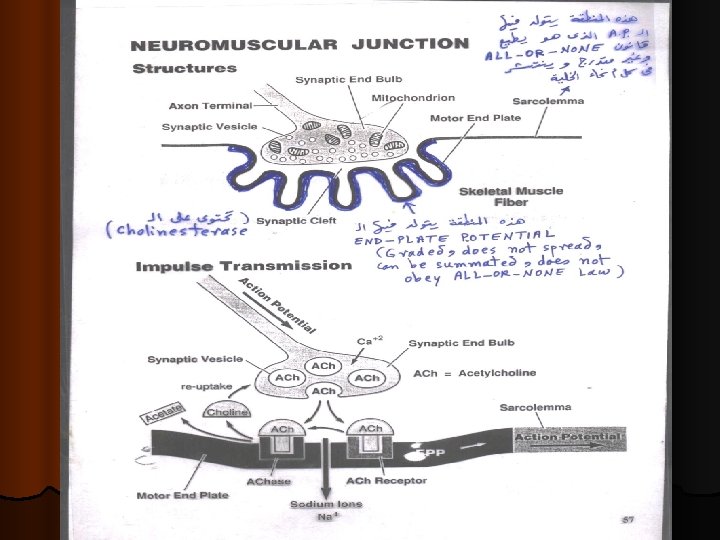 هذه المنطقة يتولد فيها
الـ A.P. الذى هو يطيع
قانون ALL-OR-NONE
وغير متدرج و ينتشر
فى كل أنحاء الخلية
NEUROMUSCULAR JUNCTION
Structures
Synaptic End Bulb
Mitochondrion
Sarcolemma
Axon Terminal
Motor End Plate
Synaptic Vesicle
Skeletal Muscle
Fiber
Synaptic Cleft
(تحتوى على الـ
Cholinesterase)
هذه المنطقة يتولد فيها الـ
END-PLATE POTENTIAL
(Graded, does not spread,
can be summated, does not
obey ALL-OR-NONE Law)
Impulse Transmission
Action Potential
Ca+2
Synaptic Vesicle
Synaptic End Bulb
ACh
ACh
ACh
ACh
ACh = Acetylcholine
re-uptake
Acetate
Choline
ACh
ACh
Sarcolemma
EPP
Action Potential
AChase
ACh Receptor
Motor End Plate
Sodium Ions
Na+
57